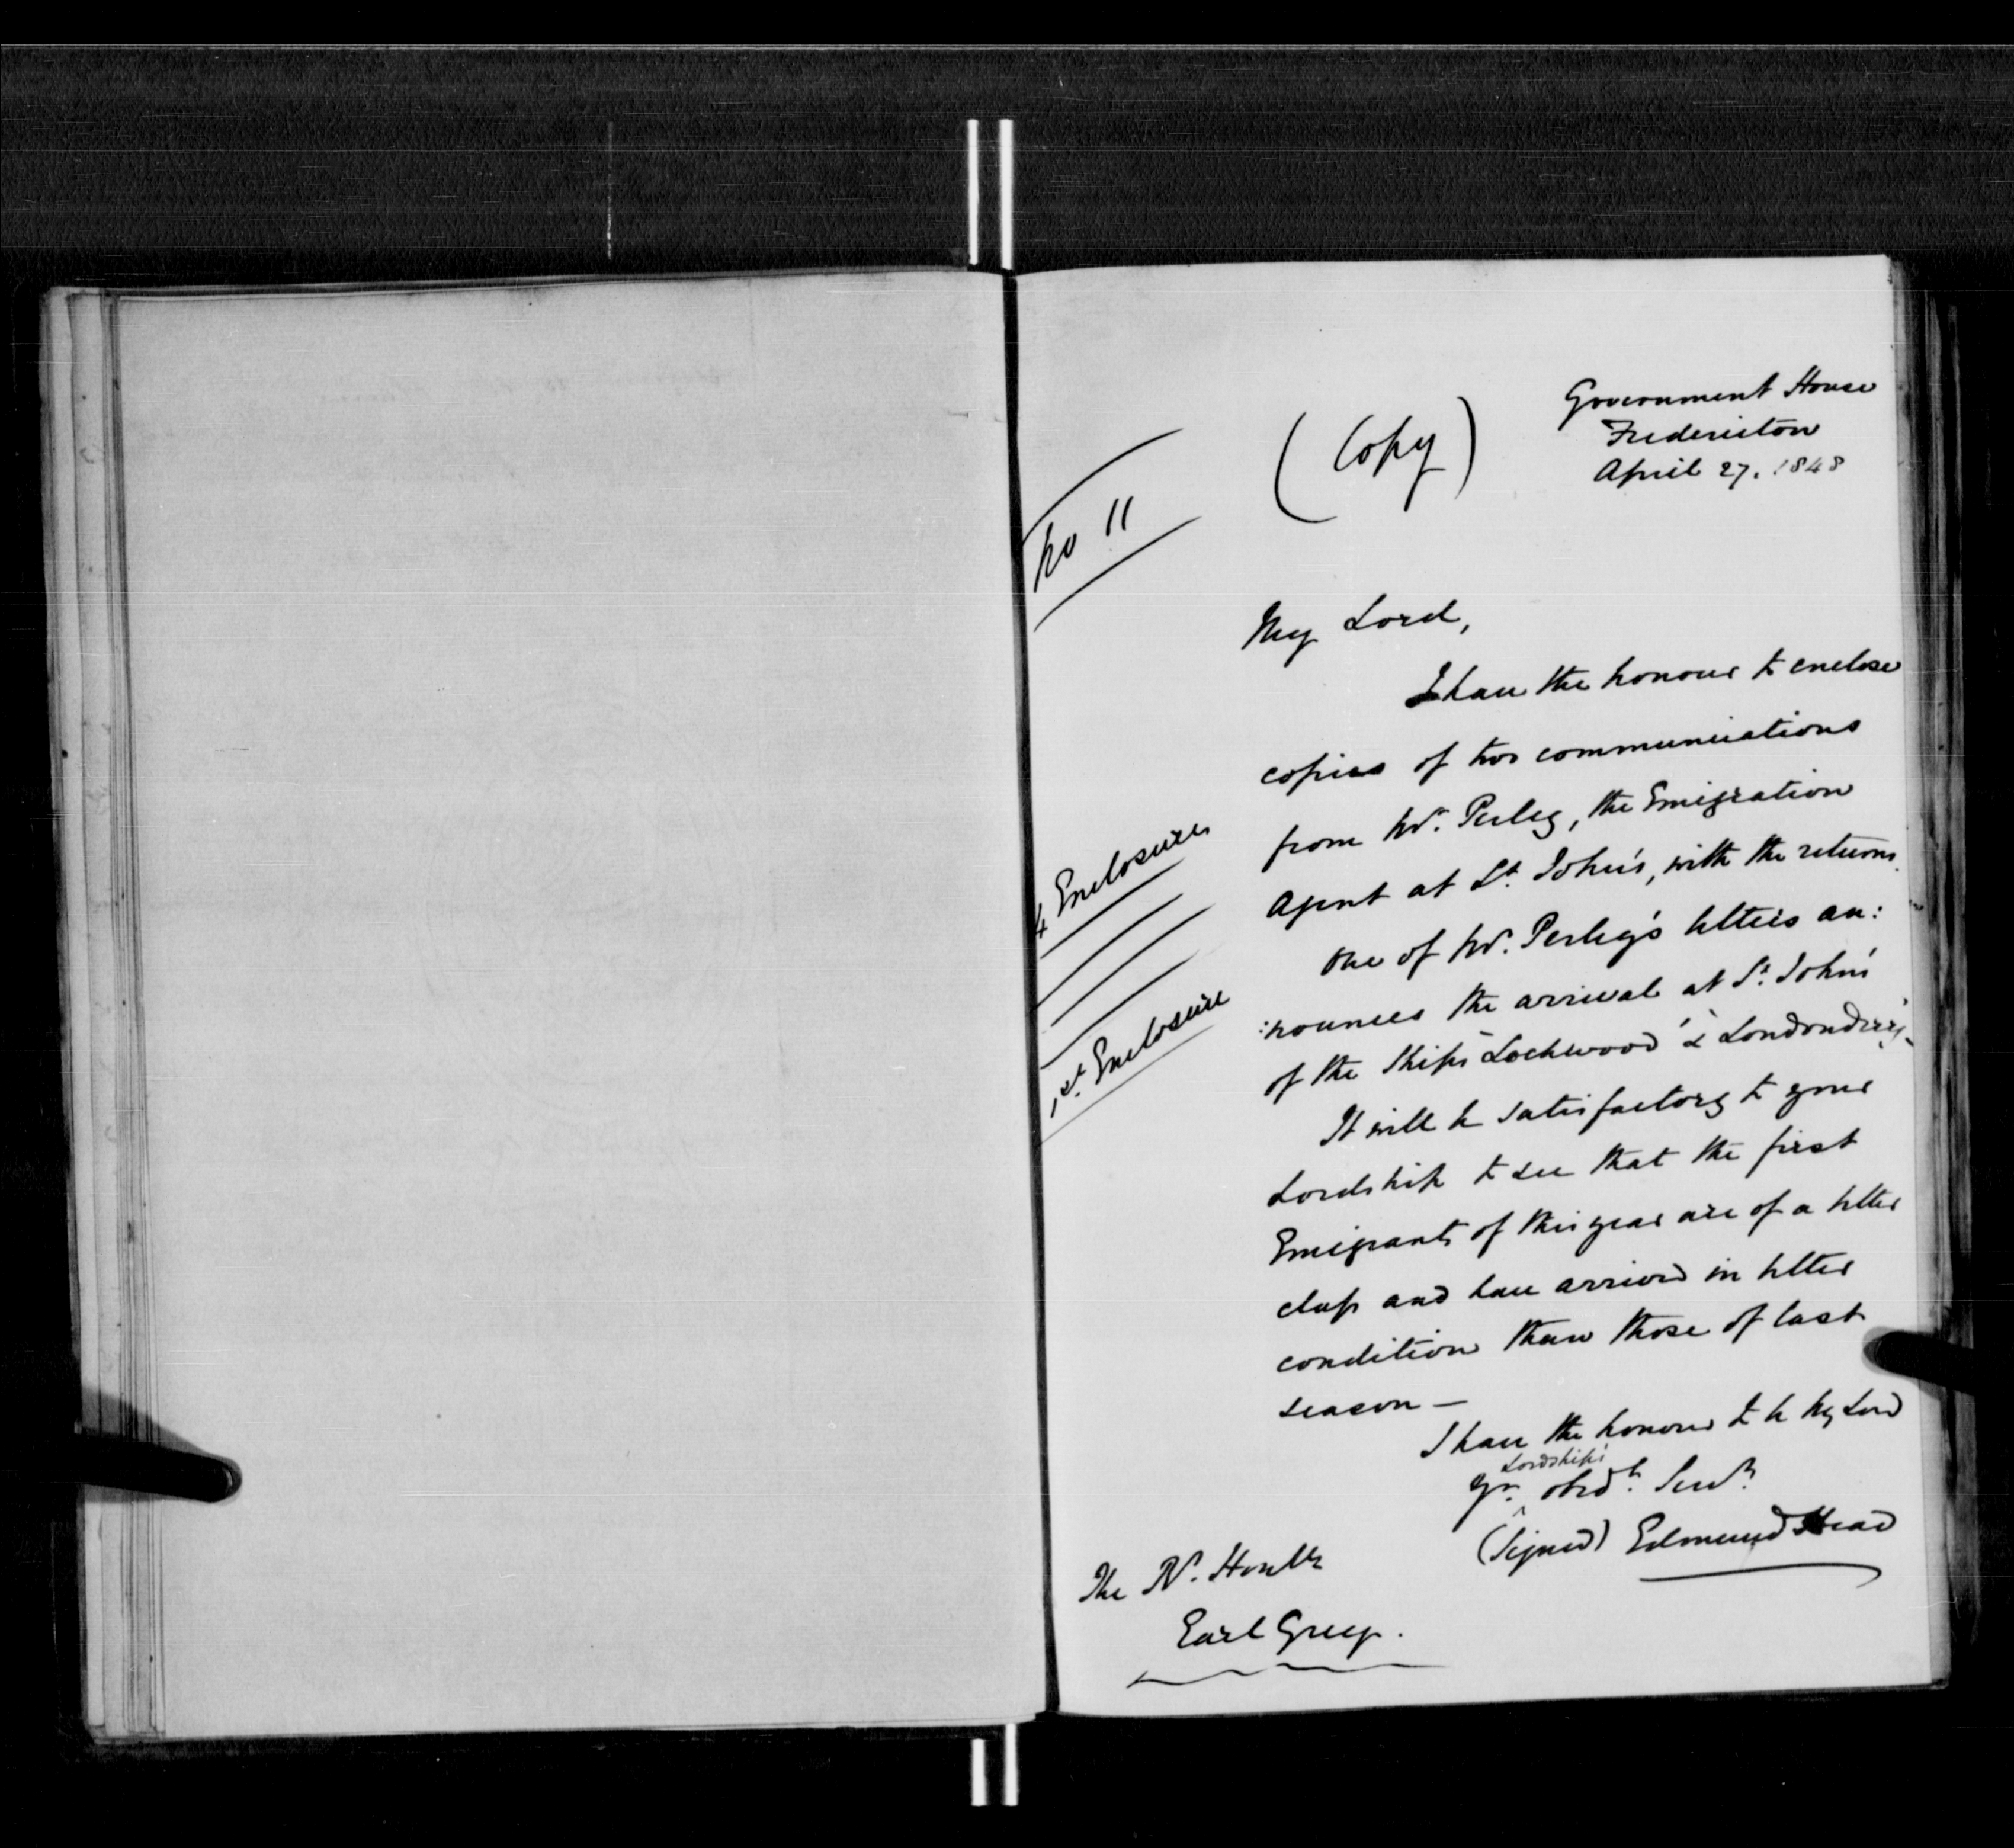 Government House
Fredericton
April 27. 1848
(Copy)
No 11
My Lord,
I have the honour to enclose
copies of two communications
from Mr. Perley, the Emigration
Agent at St. John's, with the returns.
4 Enclosures
One of Mr. Perley's letters an:
:nounces the arrival at St. John's
of the Ships "Lockwood" & "Londonderry"
1st. Enclosure
It will be satisfactory to your
Lordship to see that the first
Emigrants of this year are of a better
class and have arrived in better
condition than those of last
season —
I have the honour to be My Lord
Yr. Lordship's obedt. Servt.
(Signed) Edmund Head
The Rt. Honble
Earl Grey.